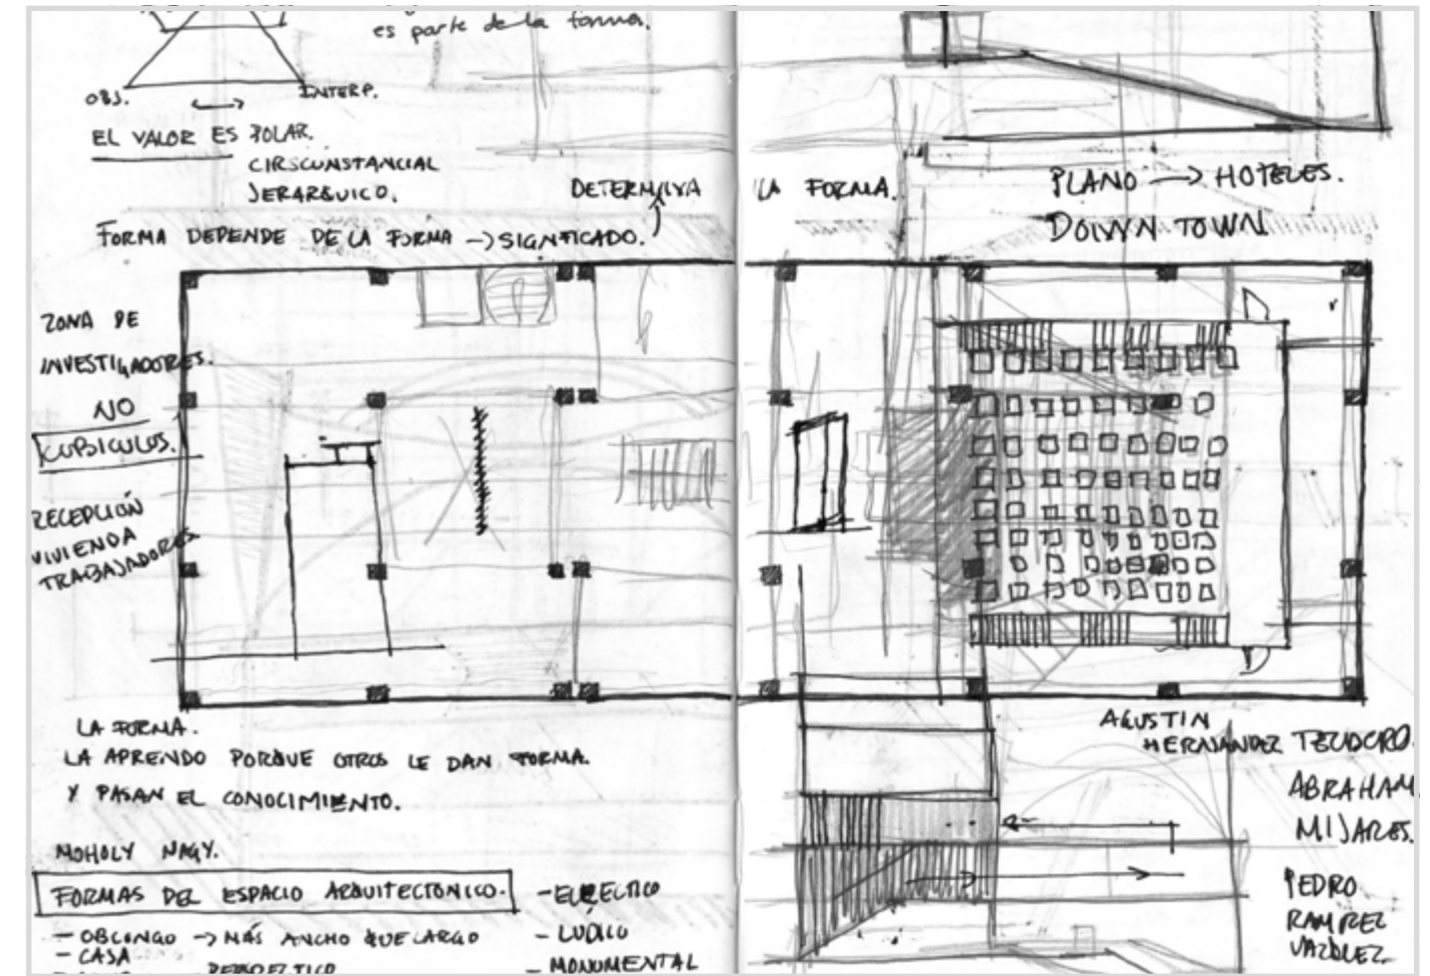 es parte de la forma.
OBJ. INTERP.
EL VALOR ES POLAR.
CIRSCUNSTANCIAL
JERARQUICO.
DETERMINA LA FORMA.
FORMA DEPENDE DE LA FORMA → SIGNFICADO.
PLANO → HOTELES.
DOWN TOWN
ZONA DE
INVESTIGADORES.
NO
CUBICULOS.
RECEPCIÓN
VIVIENDA
TRABAJADORES
LA FORMA.
LA APRENDO PORQUE OTROS LE DAN FORMA.
Y PASAN EL CONOCIMIENTO.
MOHOLY NAGY.
FORMAS DEL ESPACIO ARQUITECTONICO.
- OBLONGO → MÁS ANCHO QUE LARGO
- CASA
- ECLECTICO
- LUDICO
- MONUMENTAL
AGUSTIN
HERNANDEZ
TEODORO.
ABRAHAM
MIJARES.
PEDRO
RAMIREZ
VAZQUEZ.